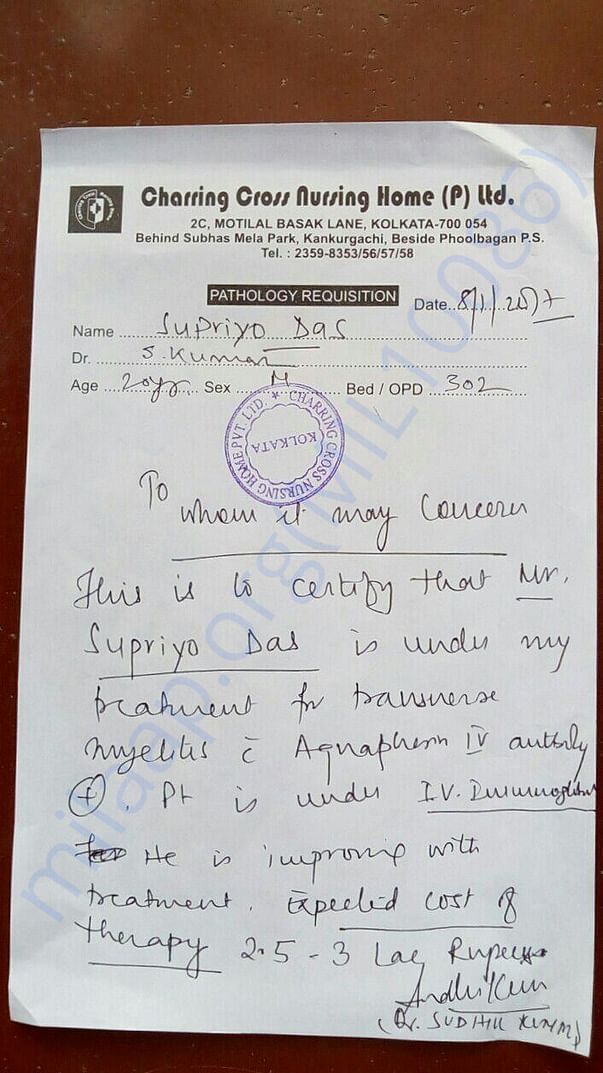 Charring Cross Nursing Home (P) Ltd.
2C, MOTILAL BASAK LANE, KOLKATA-700 054
Behind Subhas Mela Park, Kankurgachi, Beside Phoolbagan P.S.
Tel. : 2359-8353/56/57/58
PATHOLOGY REQUISITION
Date..8/1/2017
Name ....Supriyo Das
Dr. ....S. Kumar
Age ....20yrs.... Sex ....M.... Bed / OPD ....302
CHARRING CROSS NURSING HOME PVT. LTD. * KOLKATA
To whom it may concern
This is to certify that Mr.
Supriyo Das is under my
treatment for transverse
myelitis c̄ Aquaphorin IV antibody
(+). Pt is under I.V. Immunoglobin
He is improving with
treatment. Expected cost of
therapy 2.5 - 3 Lac Rupees
(Dr. SUDHIR KUMAR)
milaap.org(MIL10086)